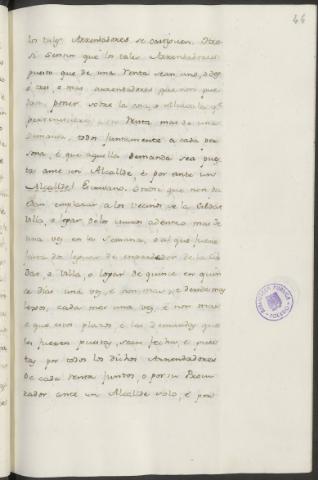 44
los tales Arrendadores se castiguen. Otro
si seono que los tales Arrendadores
puesto que de una Renta sean uno, o dos
o tres, o mas arrendadores que non pue
dan poner sobre la
perteneciere a su Renta mas de una
demanda, todos juntamente a cada per
sona, é que aquella demanda sea pues
ta ante un Alcalde, é por ante un
Escrivano. Otrosi que non pue
dan emplazar a los vecinos de la Cibdad
Villa, o Logar de los muros adentro mas de
una vez en la Semana, é al que fuere
fuera do Logar de emperador de la Cib
dad, o Villa, o Logar de quince en quin
ce dias una vez, é non mas, é dende mas
lexos, cada mes una vez, é non mas
é que estos plazos é las demandas que
les fueren puestas, sean fechas, é pues
tas por todos los dichos Arrendadores
de cada renta juntos, o por su Procu
rador ante un Alcalde solo, é por
BIBLIOTECA PUBLICA
TOLEDO